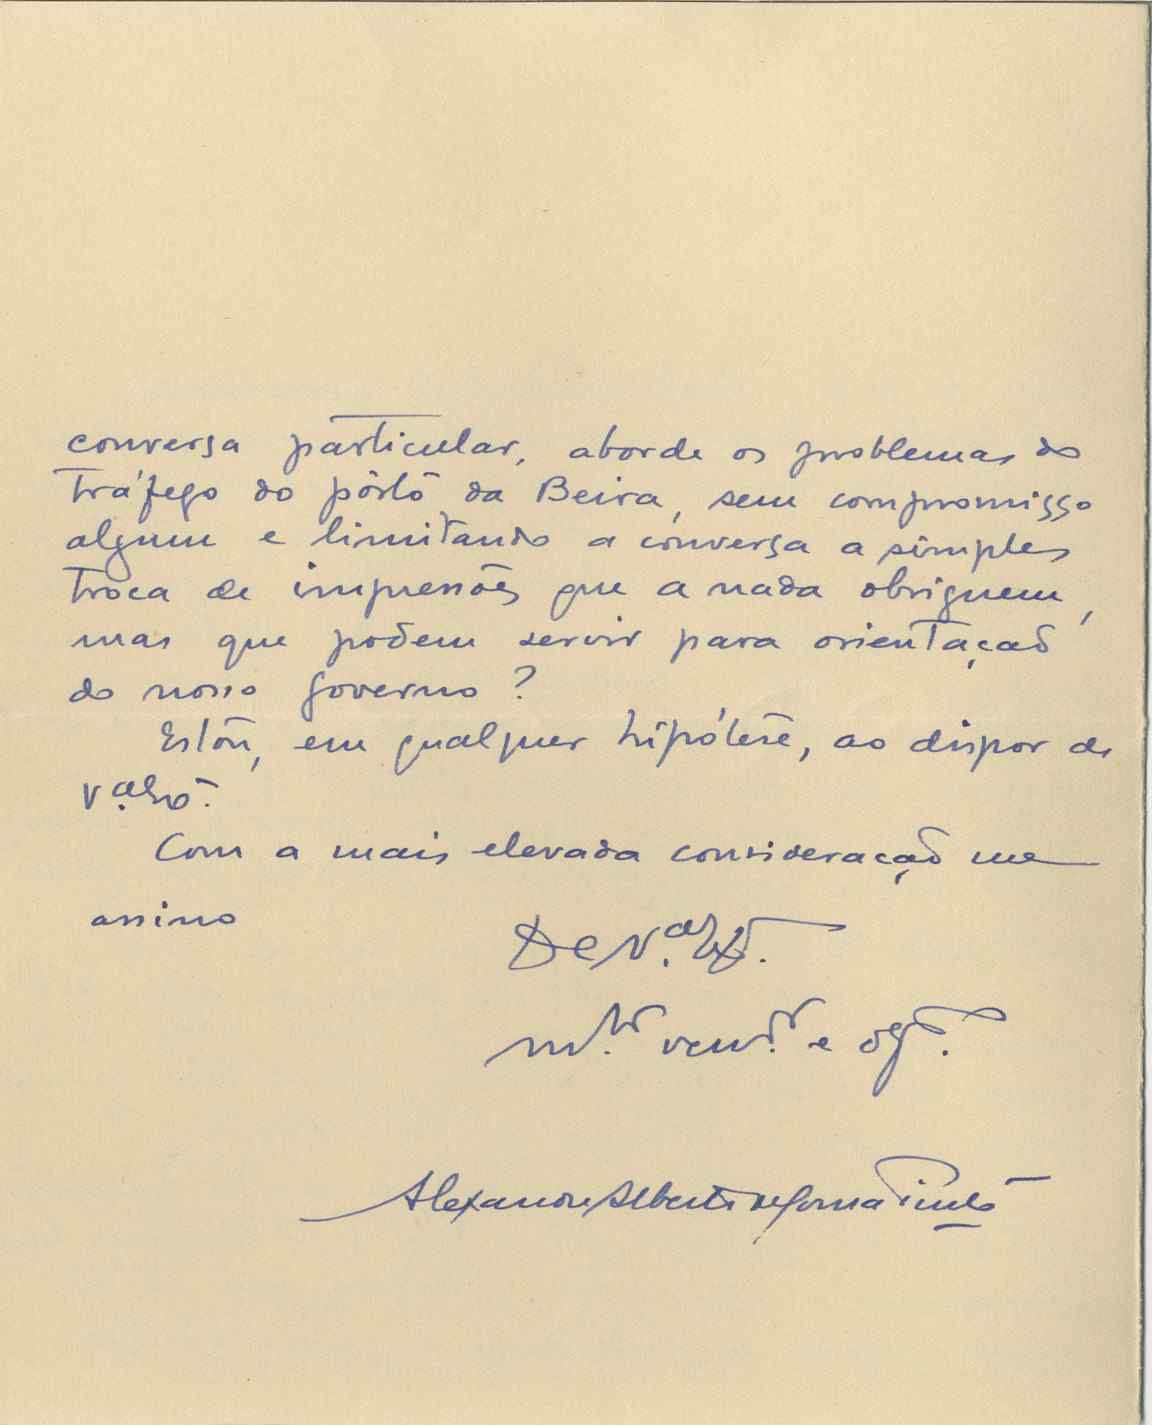 conversa particular, aborde os problemas do
tráfego do pôrto da Beira, sem compromisso
algum e limitando a conversa a simples
troca de impressões que a nada obriguem,
mas que podem servir para orientação
do nosso governo?
Estou, em qualquer hipótese, ao dispor de
V.ª Ex.ª
Com a mais elevada consideração me
assino
De V.ª Ex.ª
m.to ven.or e obg.do
Alexandre Alberto de Sousa Pinto